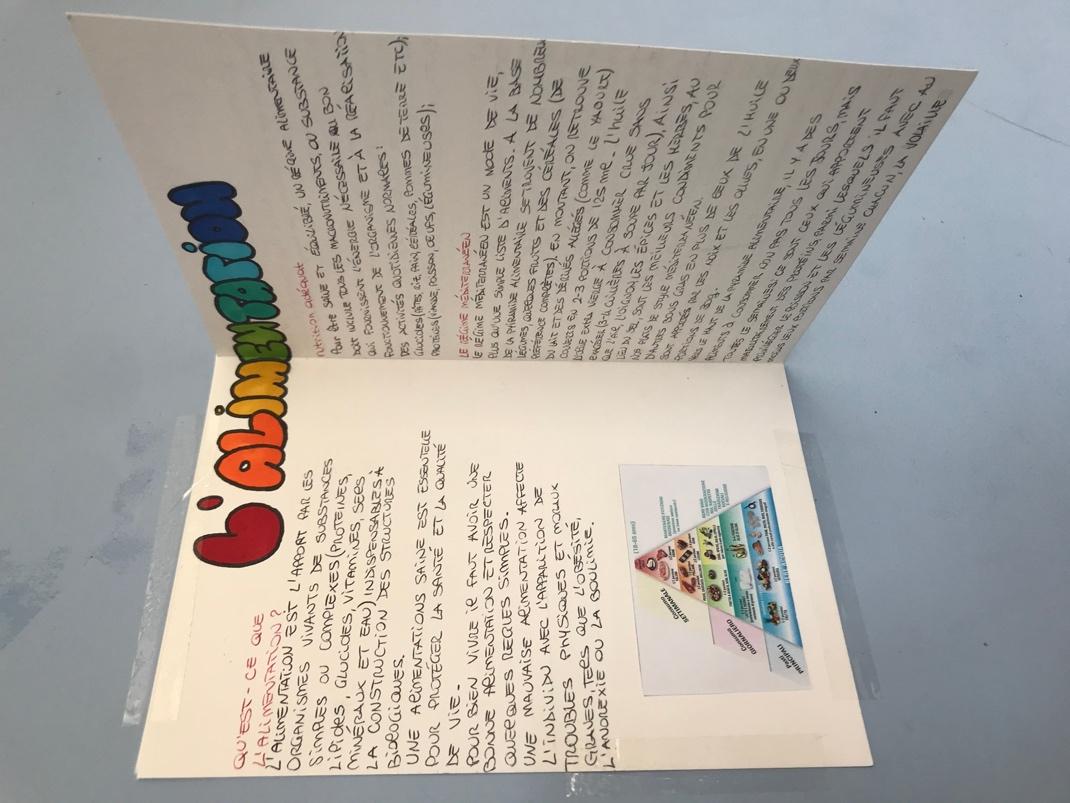 L'ALIMENTATION
QU'EST-CE QUE
L'ALIMENTATION ?
L'ALIMENTATION EST L'APPORT PAR LES
ORGANISMES VIVANTS DE SUBSTANCES
SIMPLES OU COMPLEXES (PROTEINES,
LIPIDES, GLUCIDES, VITAMINES, SELS
MINÉRAUX ET EAU) INDISPENSABLES À
LA CONSTRUCTION DES STRUCTURES
BIOLOGIQUES.
UNE ALIMENTATIONS SAINE EST ESSENTIELLE
POUR PROTÉGER LA SANTÉ ET LA QUALITÉ
DE VIE.
POUR BIEN VIVRE IL FAUT AVOIR UNE
BONNE ALIMENTATION ET RESPECTER
QUELQUES REGLES SIMPLES.
UNE MAUVAISE ALIMENTATION AFFECTE
L'INDIVIDU AVEC L'APPARITION DE
TROUBLES PHYSIQUES ET MORAUX
GRAVES, TELS QUE L'OBÉSITÉ,
L'ANOREXIE OU LA BOULIMIE.
(18-65 anni)
Consumo
SETTIMANALE
Consumo
GIORNALIERO
Pasti
PRINCIPALI
POUR ÊTRE SAINE ET ÉQUILIBRÉ, UN RÉGIME ALIMENTAIRE
DOIT INCLURE TOUS LES MACRONUTRIMENTS, OU SUBSTANCE
QUI FOURNISSENT L'ÉNERGIE NÉCESSAIRE AU BON
FONCTIONNEMENT DE L'ORGANISME ET À LA RÉALISATION
DES ACTIVITÉS QUOTIDIENNES NORMALES:
GLUCIDES (PÂTES, RIZ, PAIN, CÉRÉALES, POMMES DE TERRE ETC);
PROTÉINES (VIANDE, POISSON, OEUFS, LÉGUMINEUSES);
LE RÉGIME MÉDITERRANÉEN
LE RÉGIME MÉDITERRANÉEN EST UN MODE DE VIE,
PLUS QU'UNE SIMPLE LISTE D'ALIMENTS. À LA BASE
DE LA PYRAMIDE ALIMENTAIRE SE TROUVENT DE NOMBREUX
LÉGUMES, QUELQUES FRUITS ET DES CÉRÉALES (DE
PRÉFÉRENCE COMPLÈTES). EN MONTANT, ON RETROUVE
DU LAIT ET DES DÉRIVÉS ALLÉGÉS (COMME LE YAOURT)
EN 2-3 PORTIONS DE 125 ml. L'HUILE
EXTRA VIERGE À CONSOMMER CRUE SANS
(3-4 CUILLÈRES À SOUPE PAR JOUR), AINSI
QUE L'AIL, L'OIGNON, LES ÉPICES ET LES HERBES, AU
LIEU DU SEL, SONT DES MEILLEURS CONDIMENTS POUR
PLATS DE STYLE MÉDITERRANÉEN.
D'AUTRES GRAS EN PLUS DE CEUX DE L'HUILE
SONT LES NOIX ET LES OLIVES, EN UNE OU DEUX
PORTIONS DE 30g.
VERS LE HAUT DE LA PYRAMIDE ALIMENTAIRE, IL Y A DES
ALIMENTS À CONSOMMER NON PAS TOUS LES JOURS, MAIS
CE SONT CEUX QUI APPORTENT
LES PROTÉINES, PARMI LESQUELS IL FAUT
LE POISSON ET LES LÉGUMINEUSES AVEC AU
MOINS DEUX PORTIONS PAR SEMAINE CHACUN, LA VOLAILLE